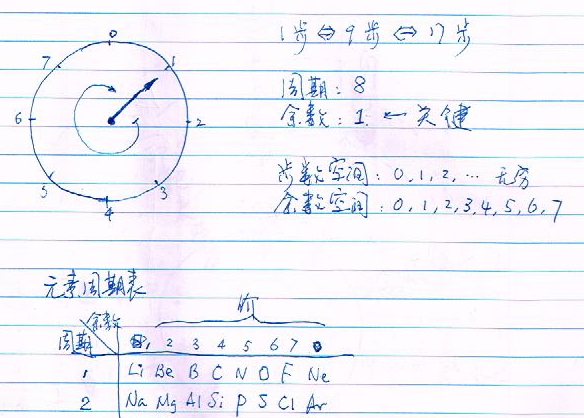 0
1
2
3
4
5
6
7
1步⇔9步⇔17步
周期：8
余数：1. ← 关键
步数空间：0,1,2,… 无穷
余数空间：0,1,2,3,4,5,6,7
元素周期表
价
余数
周期 1 2 3 4 5 6 7 0
1 Li Be B C N O F Ne
2 Na Mg Al Si P S Cl Ar